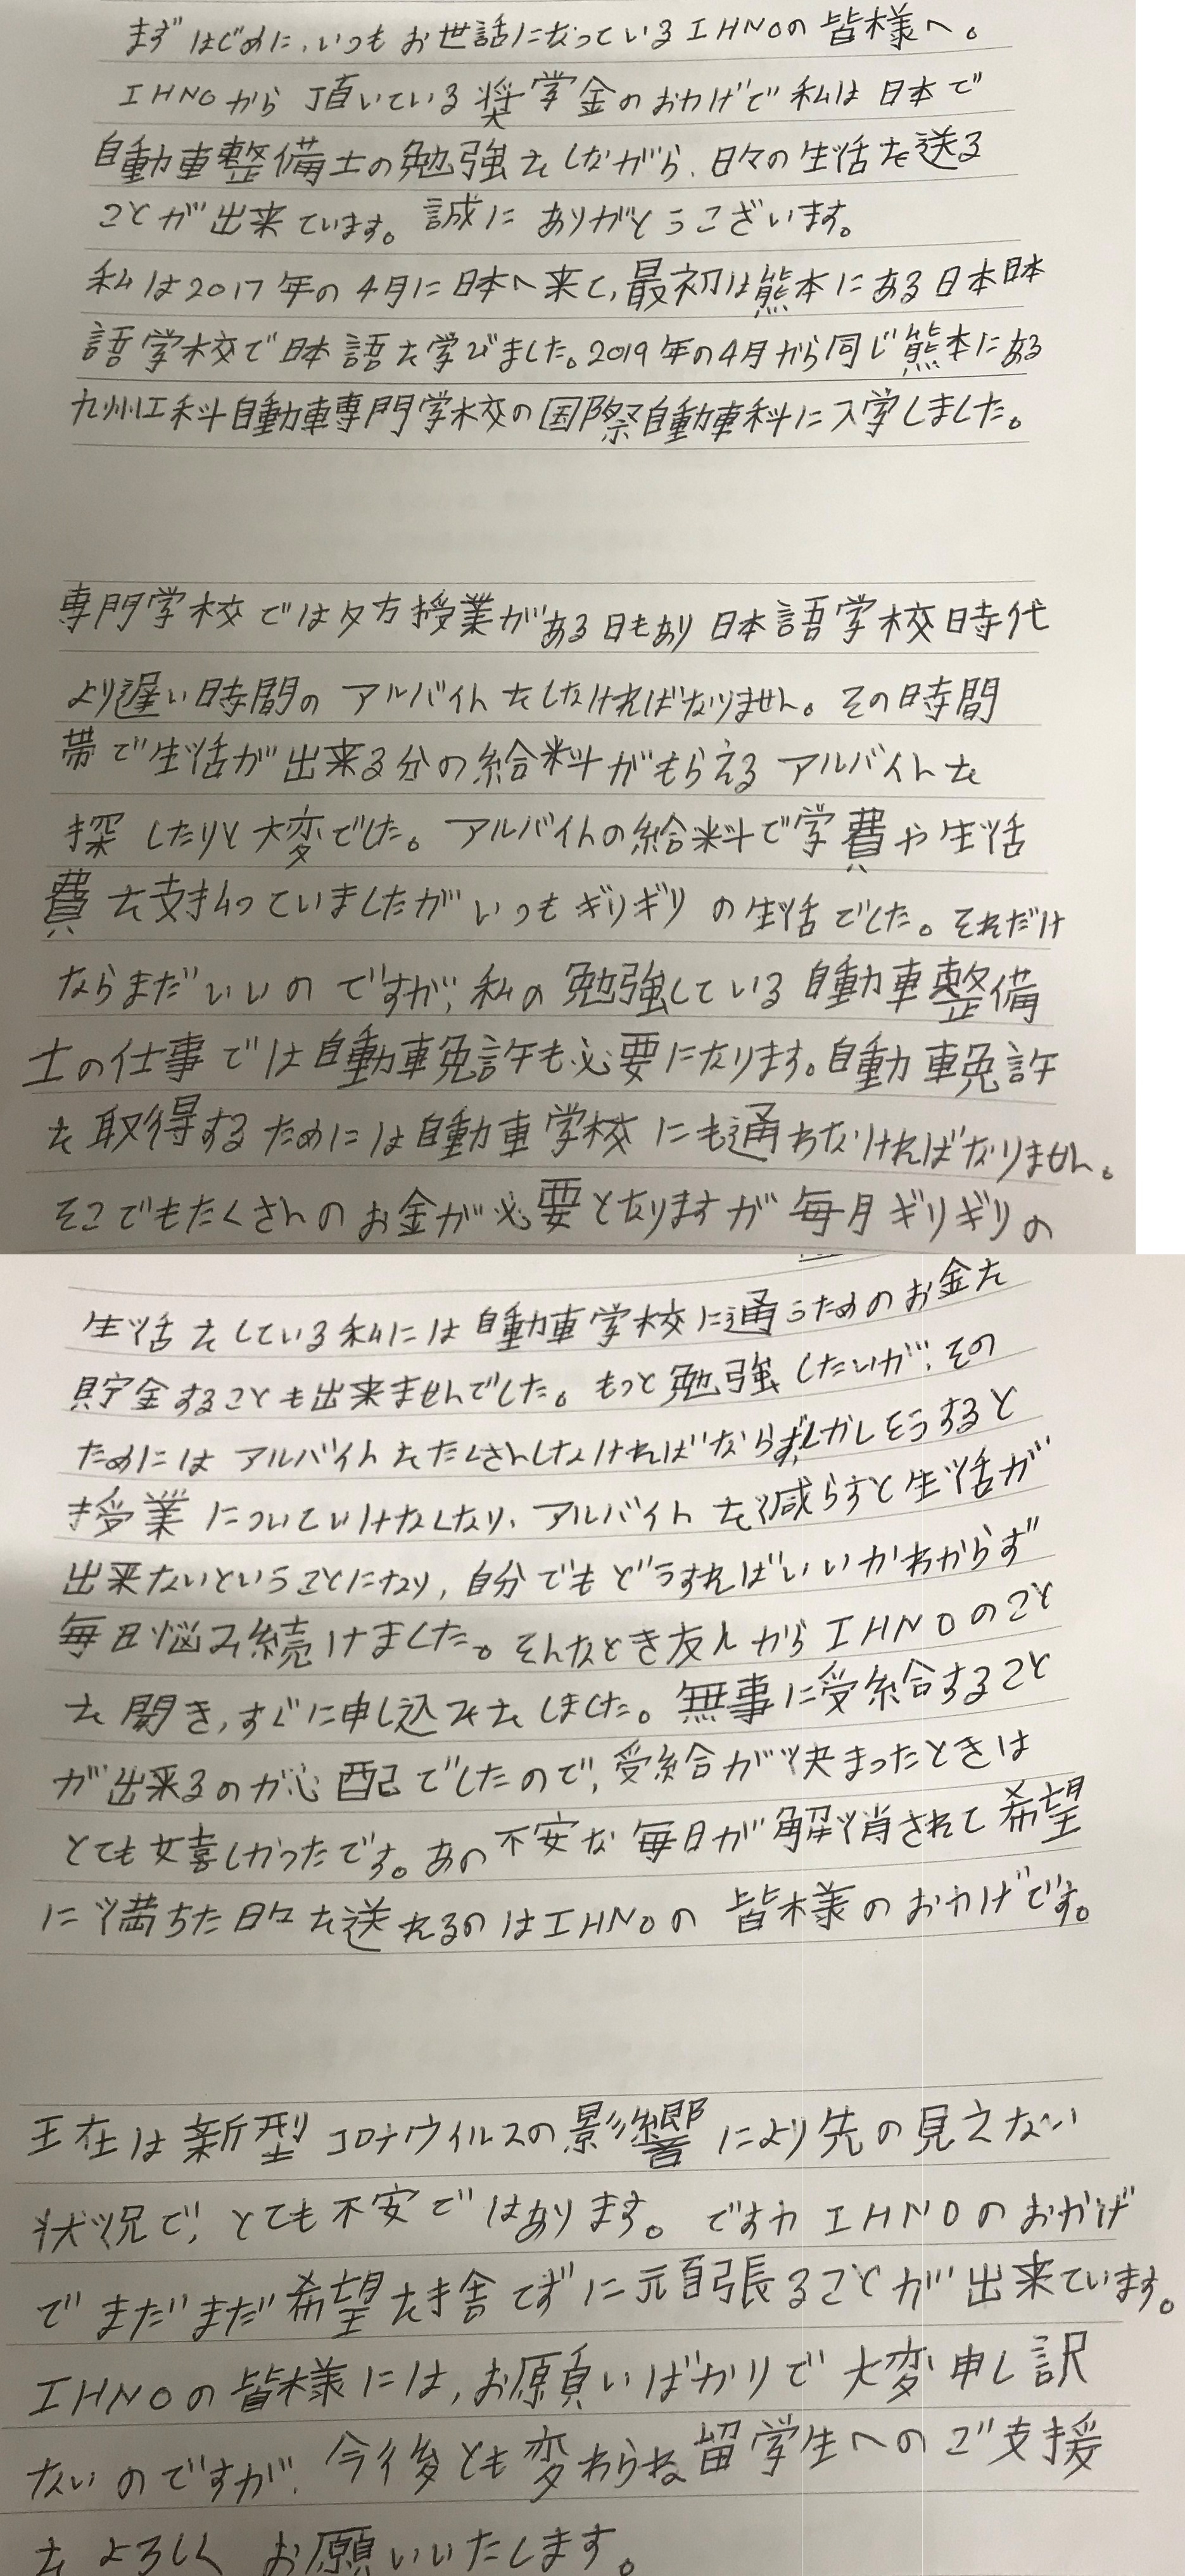 まずはじめに、いつもお世話になっているIHNOの皆様へ。
IHNOから頂いている奨学金のおかげで私は日本で
自動車整備士の勉強をしながら、日々の生活を送る
ことが出来ています。誠にありがとうございます。
私は2017年の4月に日本へ来て、最初は熊本にある日本日本
語学校で日本語を学びました。2019年の4月から同じ熊本にある
九州工科自動車専門学校の国際自動車科に入学しました。
専門学校では夕方授業がある日もあり日本語学校時代
より遅い時間のアルバイトをしなければなりません。その時間
帯で生活が出来る分の給料がもらえるアルバイトを
探したりと大変でした。アルバイトの給料で学費や生活
費を支払っていましたがいつもギリギリの生活でした。それだけ
ならまだいいのですが、私の勉強している自動車整備
士の仕事では自動車免許も必要になります。自動車免許
を取得するためには自動車学校にも通わなければなりません。
そこでもたくさんのお金が必要となりますが毎月ギリギリの
生活をしている私には自動車学校に通うためのお金を
貯金することも出来ませんでした。もっと勉強したいが、その
ためにはアルバイトをたくさんしなければならず、しかしそうすると
授業についていけなくなり、アルバイトを減らすと生活が
出来ないということになり、自分でもどうすればいいかわからず
毎日悩み続けました。そんなとき友人からIHNOのこと
を聞き、すぐに申し込みをしました。無事に受給すること
が出来るのか心配でしたので、受給が決まったときは
とても嬉しかったです。あの不安な毎日が解消されて希望
に満ちた日々を送れるのはIHNOの皆様のおかげです。
王在は新型コロナウイルスの影響により先の見えない
状況で、とても不安ではあります。ですがIHNOのおかげ
でまだまだ希望を捨てずに元頑張ることが出来ています。
IHNOの皆様には、お願いばかりで大変申し訳
ないのですが、今後とも変わらね留学生へのご支援
をよろしくお願いいたします。